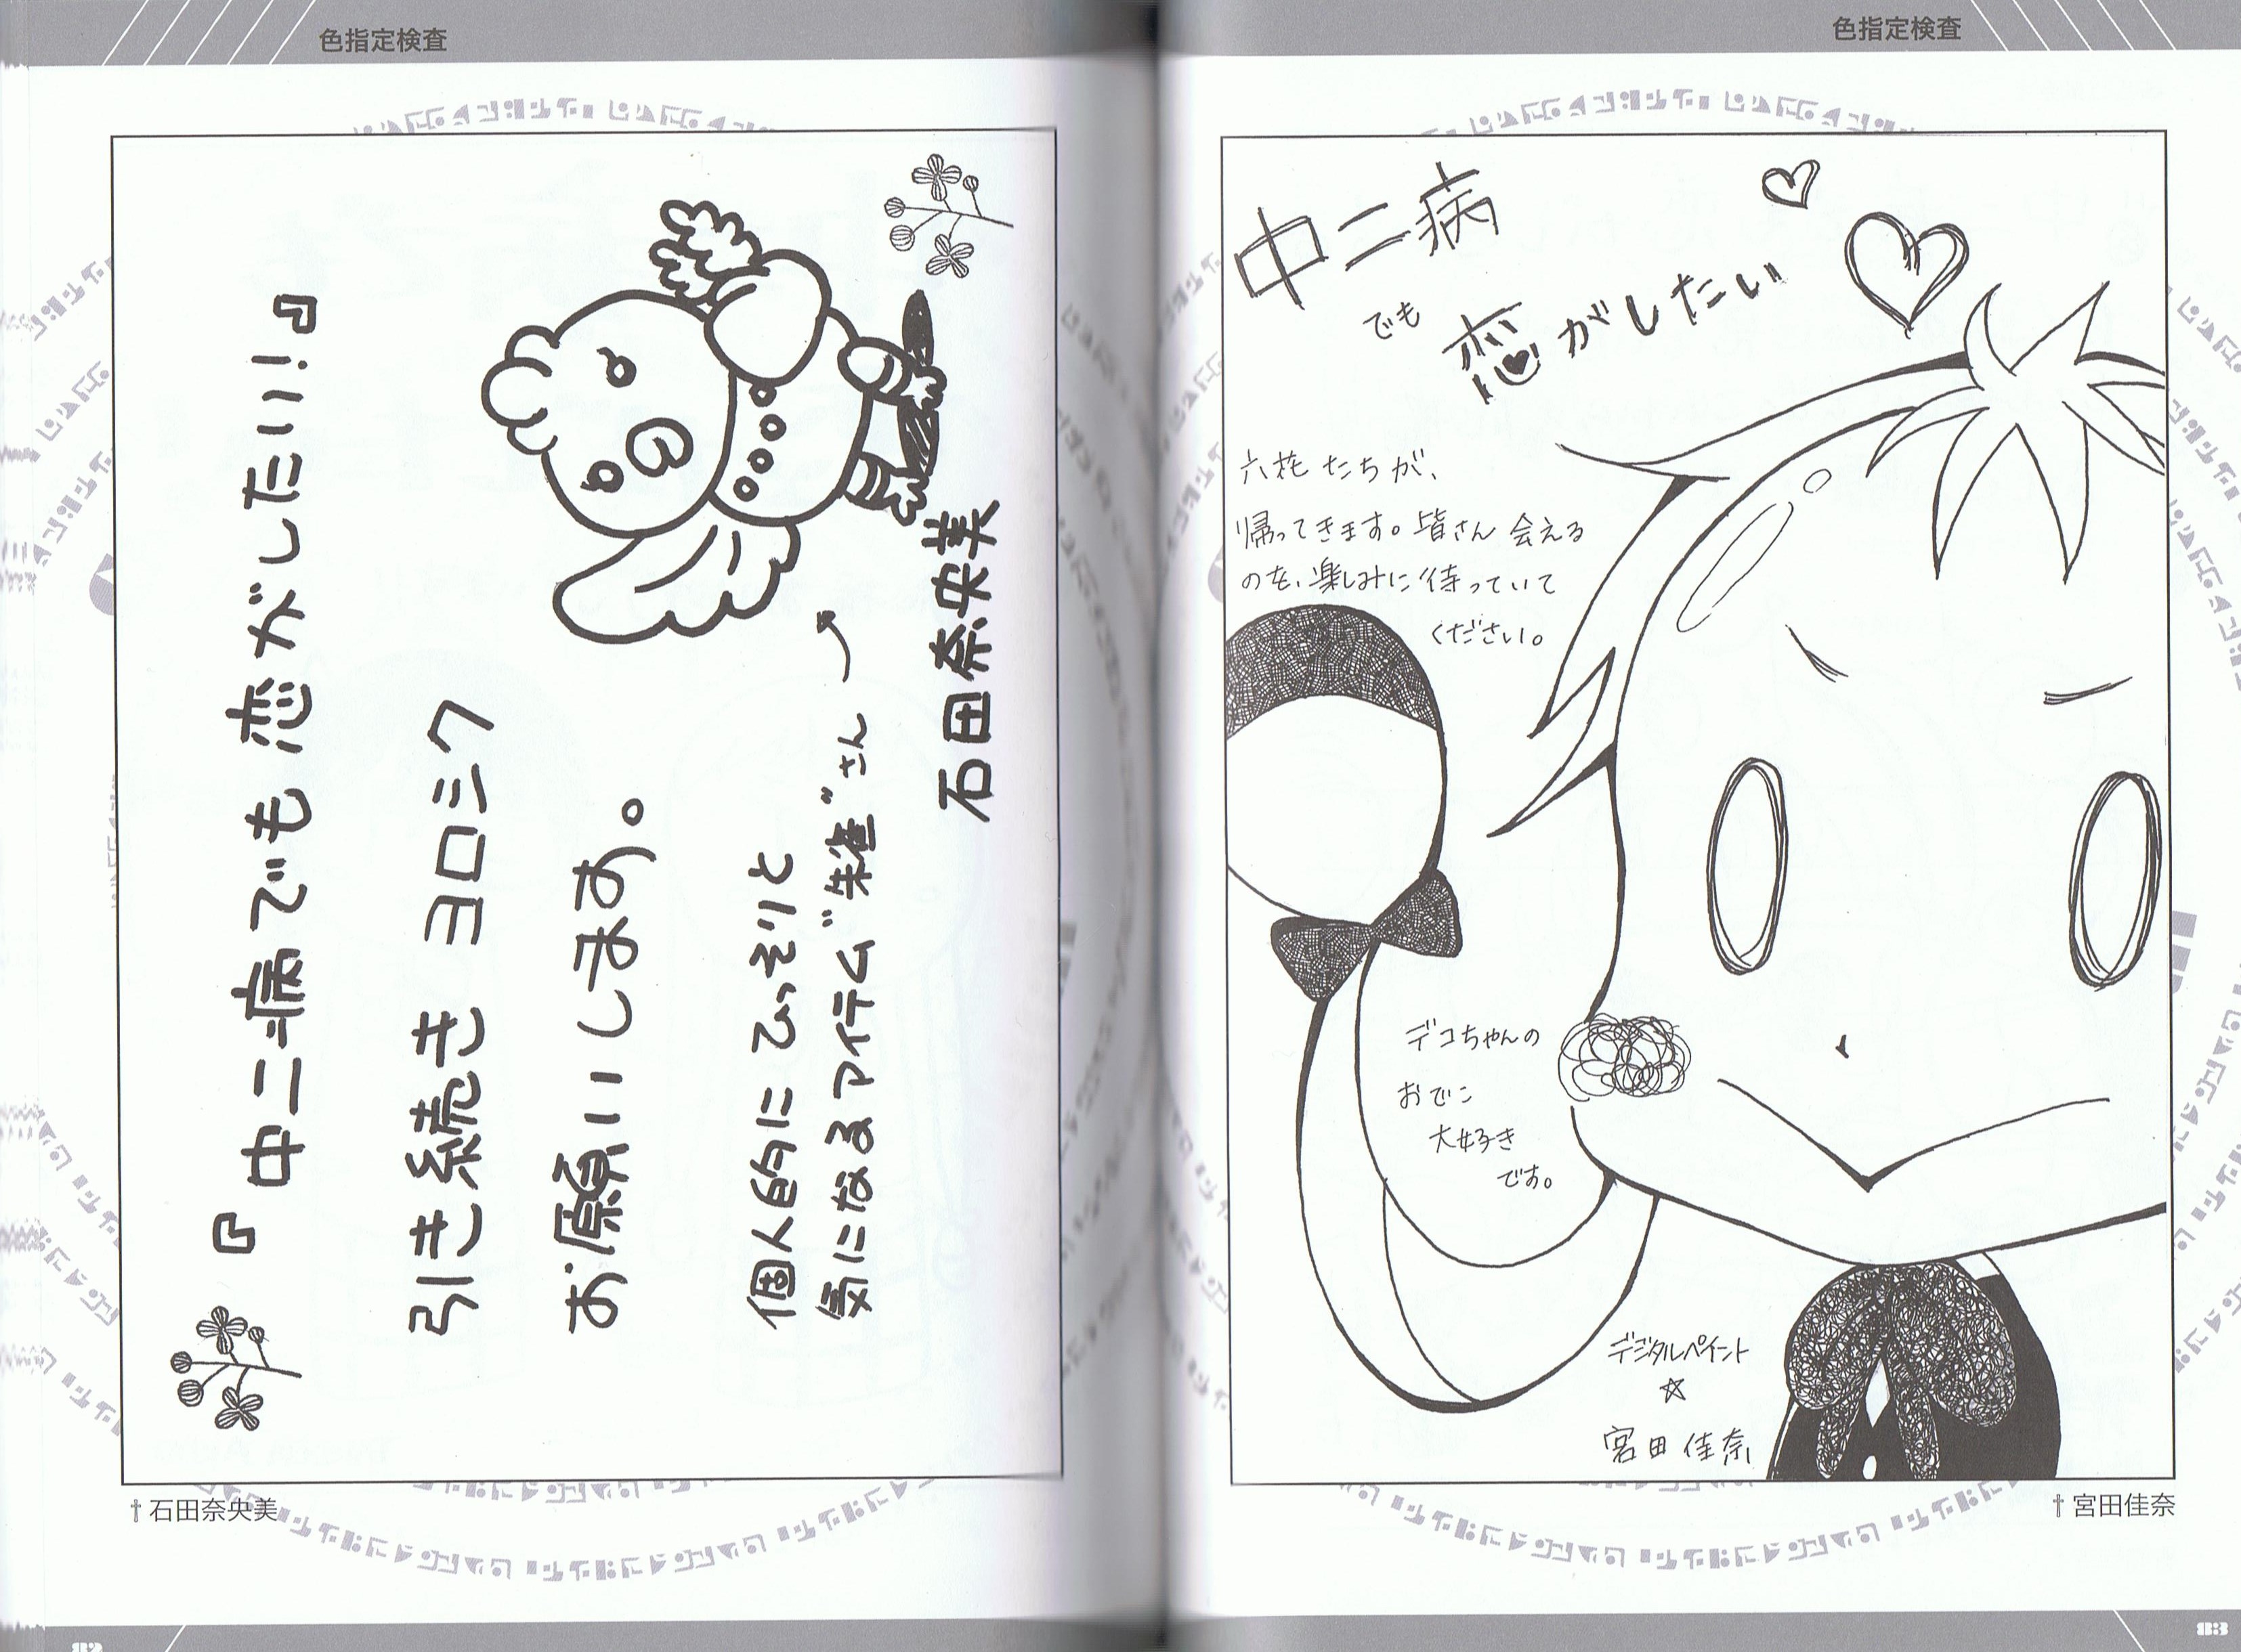 色指定検査
『中二病でも恋がしたい!』
引き続き ヨロシク
お願いします。
個人的に ひっそりと
気になるアイテム“朱雀”さん
石田奈央美
† 石田奈央美
82
色指定検査
中二病
でも
恋がしたい
六花たちが、
帰ってきます。皆さん 会える
のを、楽しみに待っていて
ください。
デコちゃんの
おでこ
大好き
です。
デジタルペイント
☆
宮田佳奈
† 宮田佳奈
83